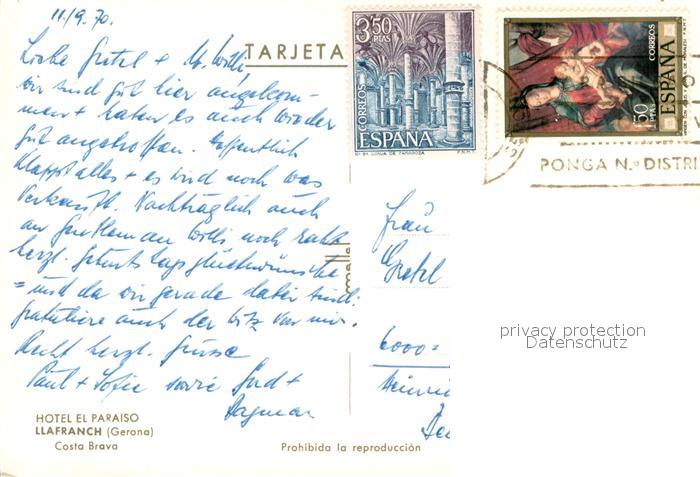 11/9.70.
TARJETA
Liebe Gretel + Hr. Willi,
wir sind gut hier angekom-
men + haben es auch wieder
gut angetroffen. Hoffentlich
klappt alles + es wird noch was
verkauft. Nachträglich auch
an Gentleman Willi noch recht
herzl. Geburtstagsglückwünsche
= und da wir gerade dabei sind:
gratuliere auch der von mir.
Recht herzl. Grüsse
Paul + Sofie sowie Gerd +
Dagmar
3'50 PTAS
CORREOS
ESPAÑA
LONJA DE ZARAGOZA
F.N.M.T.
CORREOS
ESPAÑA
1'50 PTAS
PONGA N.º DISTRI
Frau
Gretel
6000=
Heinri
HOTEL EL PARAISO
LLAFRANCH (Gerona)
Costa Brava
Prohibida la reproducción
privacy protection
Datenschutz